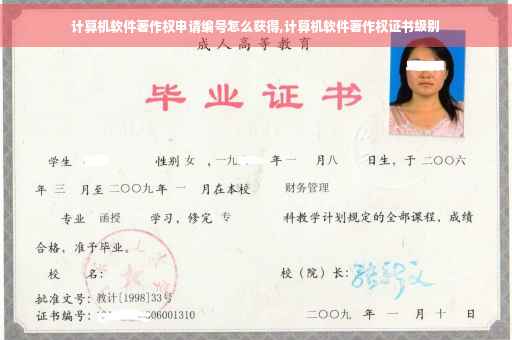 计算机软件著作权申请编号怎么获得,计算机软件著作权证书级别
成人高等教育
毕业证书
学生 性别 女 ,一九 年一 月八 日生,于二〇〇六
年 三 月至二〇〇九年 一 月在本校 财务管理
专业 函授 学习,修完 专 科教学计划规定的全部课程,成绩
合格,准予毕业。
校 名: 校(院)长:
批准文号:教计[1998]33号
证书编号: 06001310 二〇〇九 年 一 月 十 日